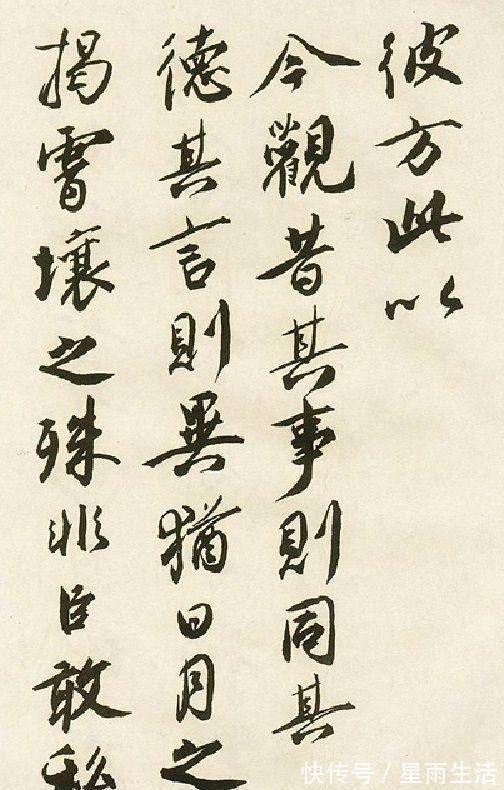 彼方此以
今觀昔其事則同其
德其言則異猶日月之
揭霄壤之殊非臣敢私
快传号 / 星雨生活